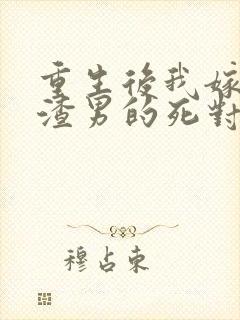 重生後我嫁
渣男的死對
穆占東